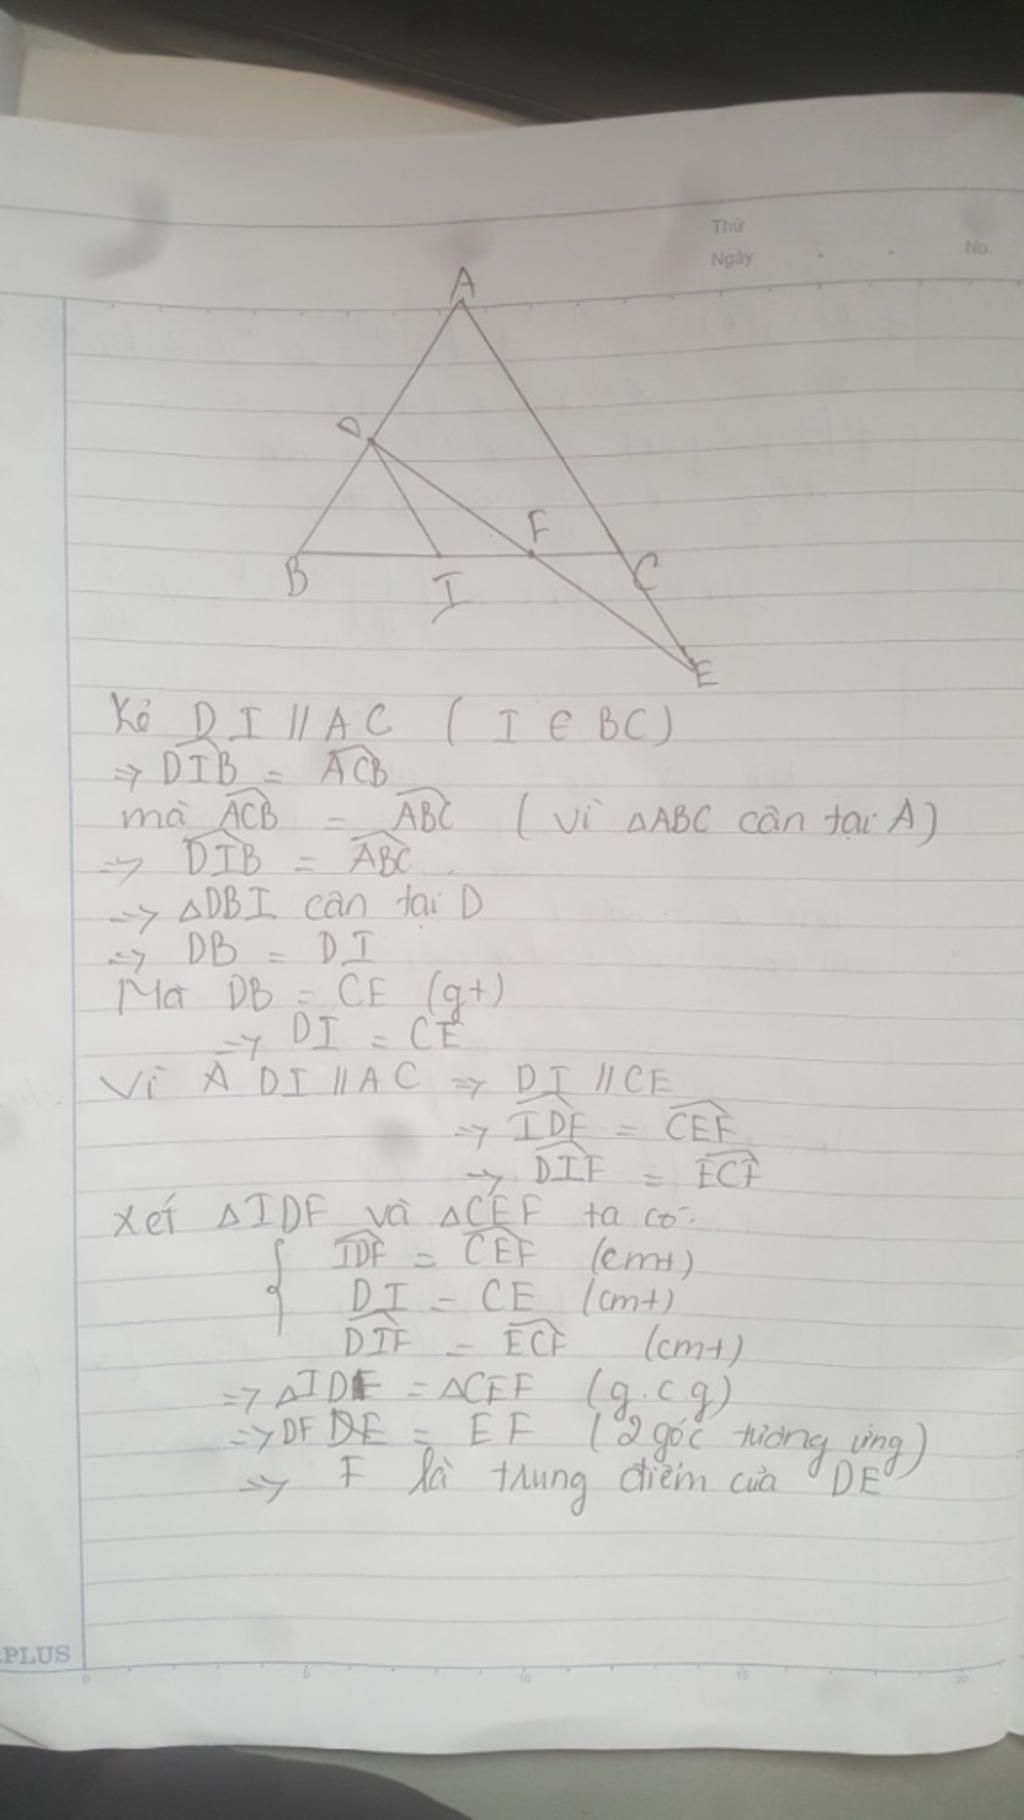 Thứ
Ngày
No.
A
D
F
B
I
C
E
Kẻ DI // AC ( I ∈ BC)
=> DIB = ACB
mà ACB = ABC ( vì △ABC cân tại A)
=> DIB = ABC
=> △DBI cân tại D
=> DB = DI
Mà DB = CE (gt)
=> DI = CE
Vì A DI // AC => DI // CE
=> IDF = CEF
=> DIF = ECF
Xét △IDF và △CEF ta có:
IDF = CEF (cmt)
DI = CE (cmt)
DIF = ECF (cmt)
=> △IDF = △CEF (g.c.g)
=> DF DE = EF ( 2 góc tương ứng)
=> F là trung điểm của DE
PLUS
0 5 10 15 20